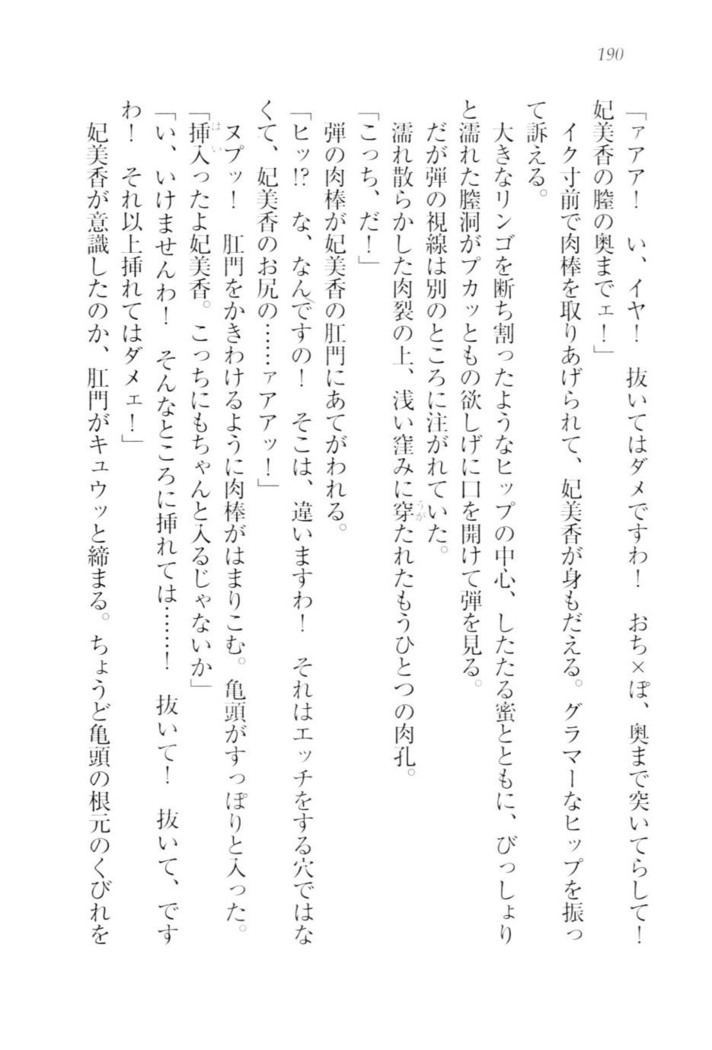 190
「ァアア！　い、イヤ！　抜いてはダメですわ！　おち×ぽ、奥まで突いてらして！
妃美香の膣の奥までェ！」
　イク寸前で肉棒を取りあげられて、妃美香が身もだえる。グラマーなヒップを振っ
て訴える。
　大きなリンゴを断ち割ったようなヒップの中心、したたる蜜とともに、びっしょり
と濡れた膣洞がプカッともの欲しげに口を開けて弾を見る。
　だが弾の視線は別のところに注がれていた。
　濡れ散らかした肉裂の上、浅い窪みに穿たれたもうひとつの肉孔。
「こっち、だ！」
　弾の肉棒が妃美香の肛門にあてがわれる。
「ヒッ!?　な、なんですの！　そこは、違いますわ！　それはエッチをする穴ではな
くて、妃美香のお尻の……ァアアッ！」
　ヌプッ！　肛門をかきわけるように肉棒がはまりこむ。亀頭がすっぽりと入った。
「挿入ったよ妃美香。こっちにもちゃんと入るじゃないか」
「い、いけませんわ！　そんなところに挿れては……！　抜いて！　抜いて、です
わ！　それ以上挿れてはダメェ！」
　妃美香が意識したのか、肛門がキュウッと締まる。ちょうど亀頭の根元のくびれを